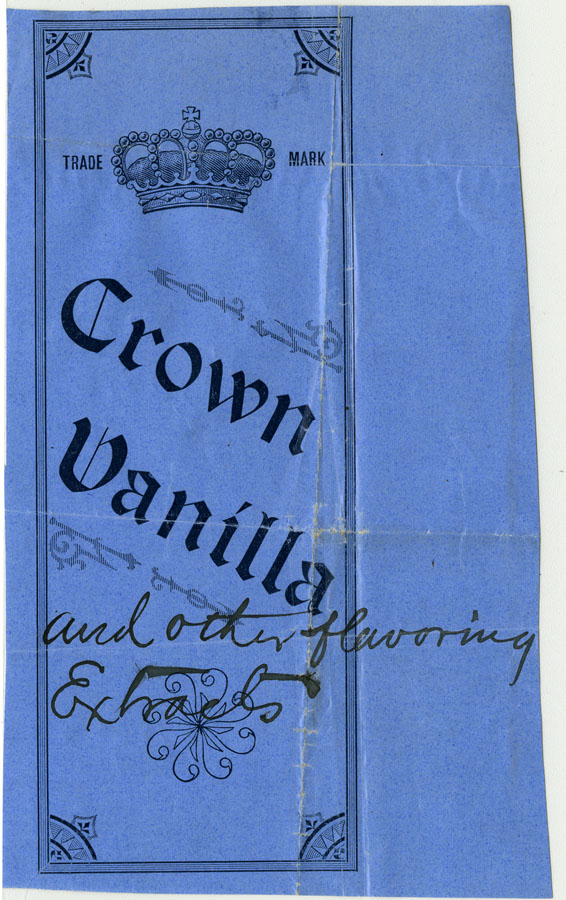 TRADE MARK
Crown
Vanilla
and other flavoring
Extracts